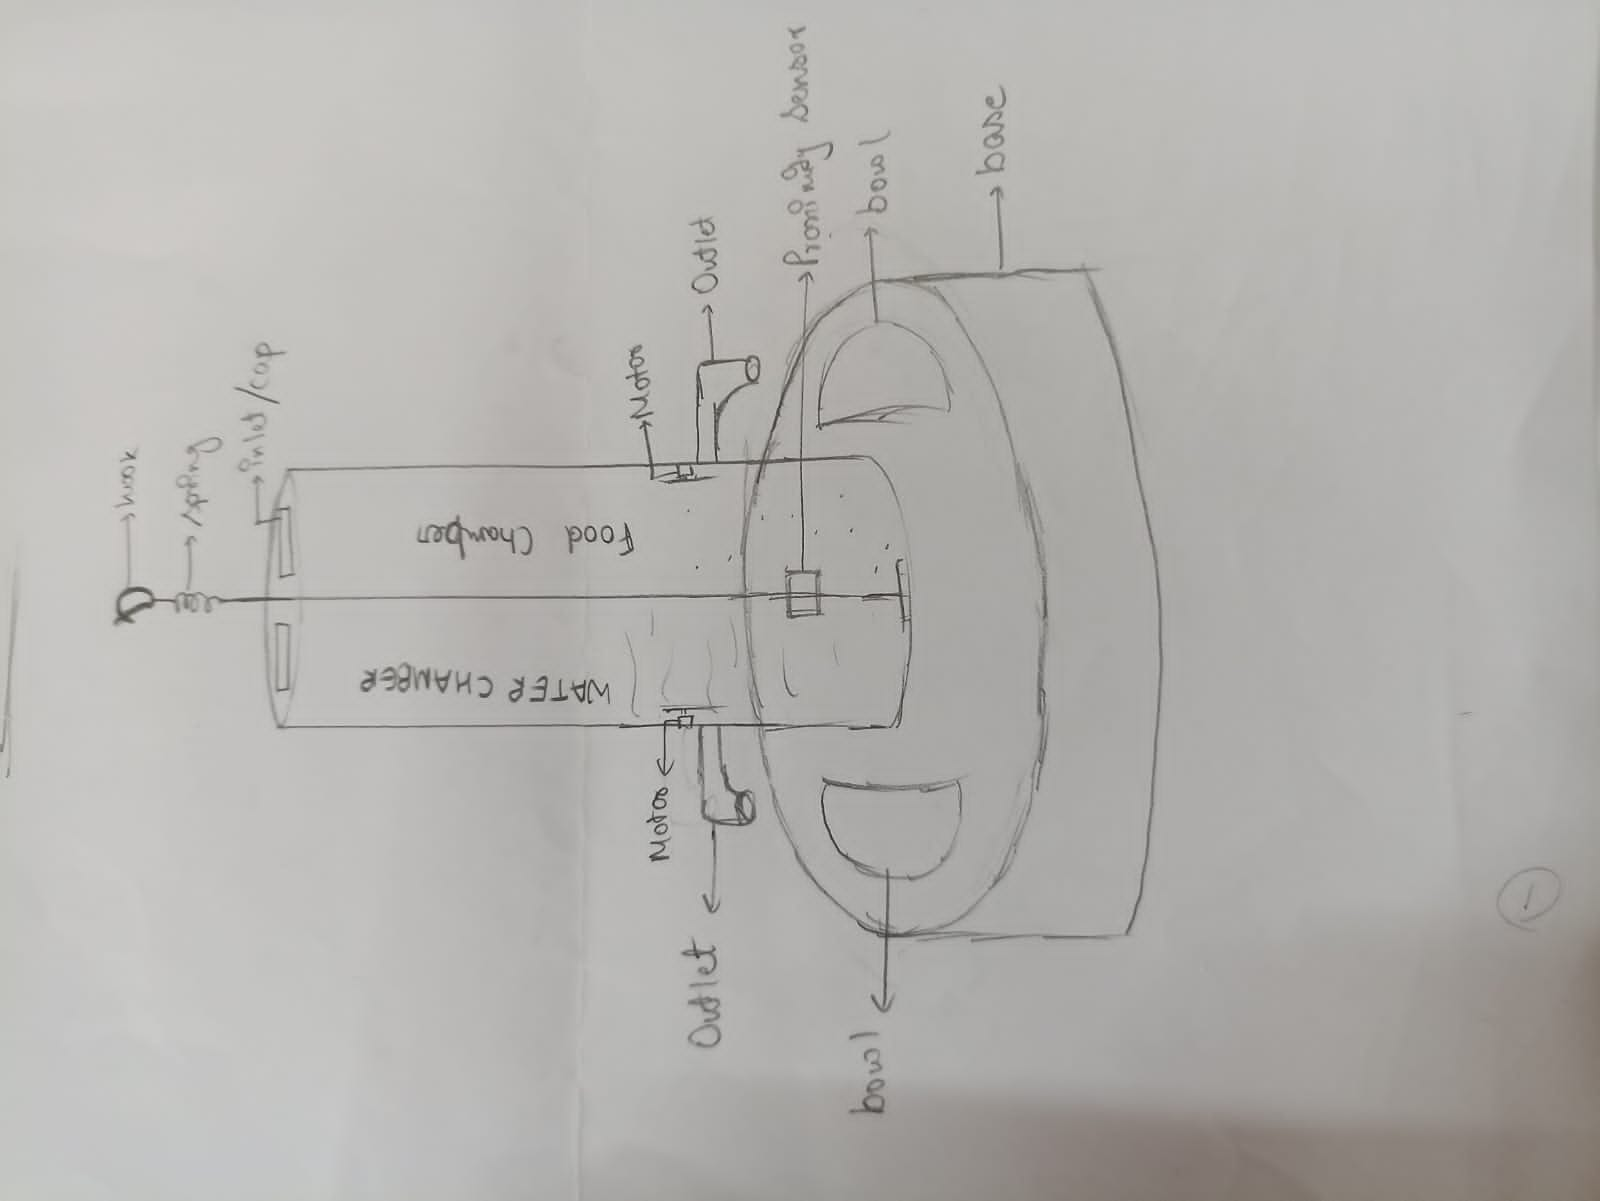 hook
spring
inlet/cap
Food Chamber
WATER CHAMBER
Motor
Motor
Outlet
Outlet
Proximity Sensor
bowl
bowl
base
1